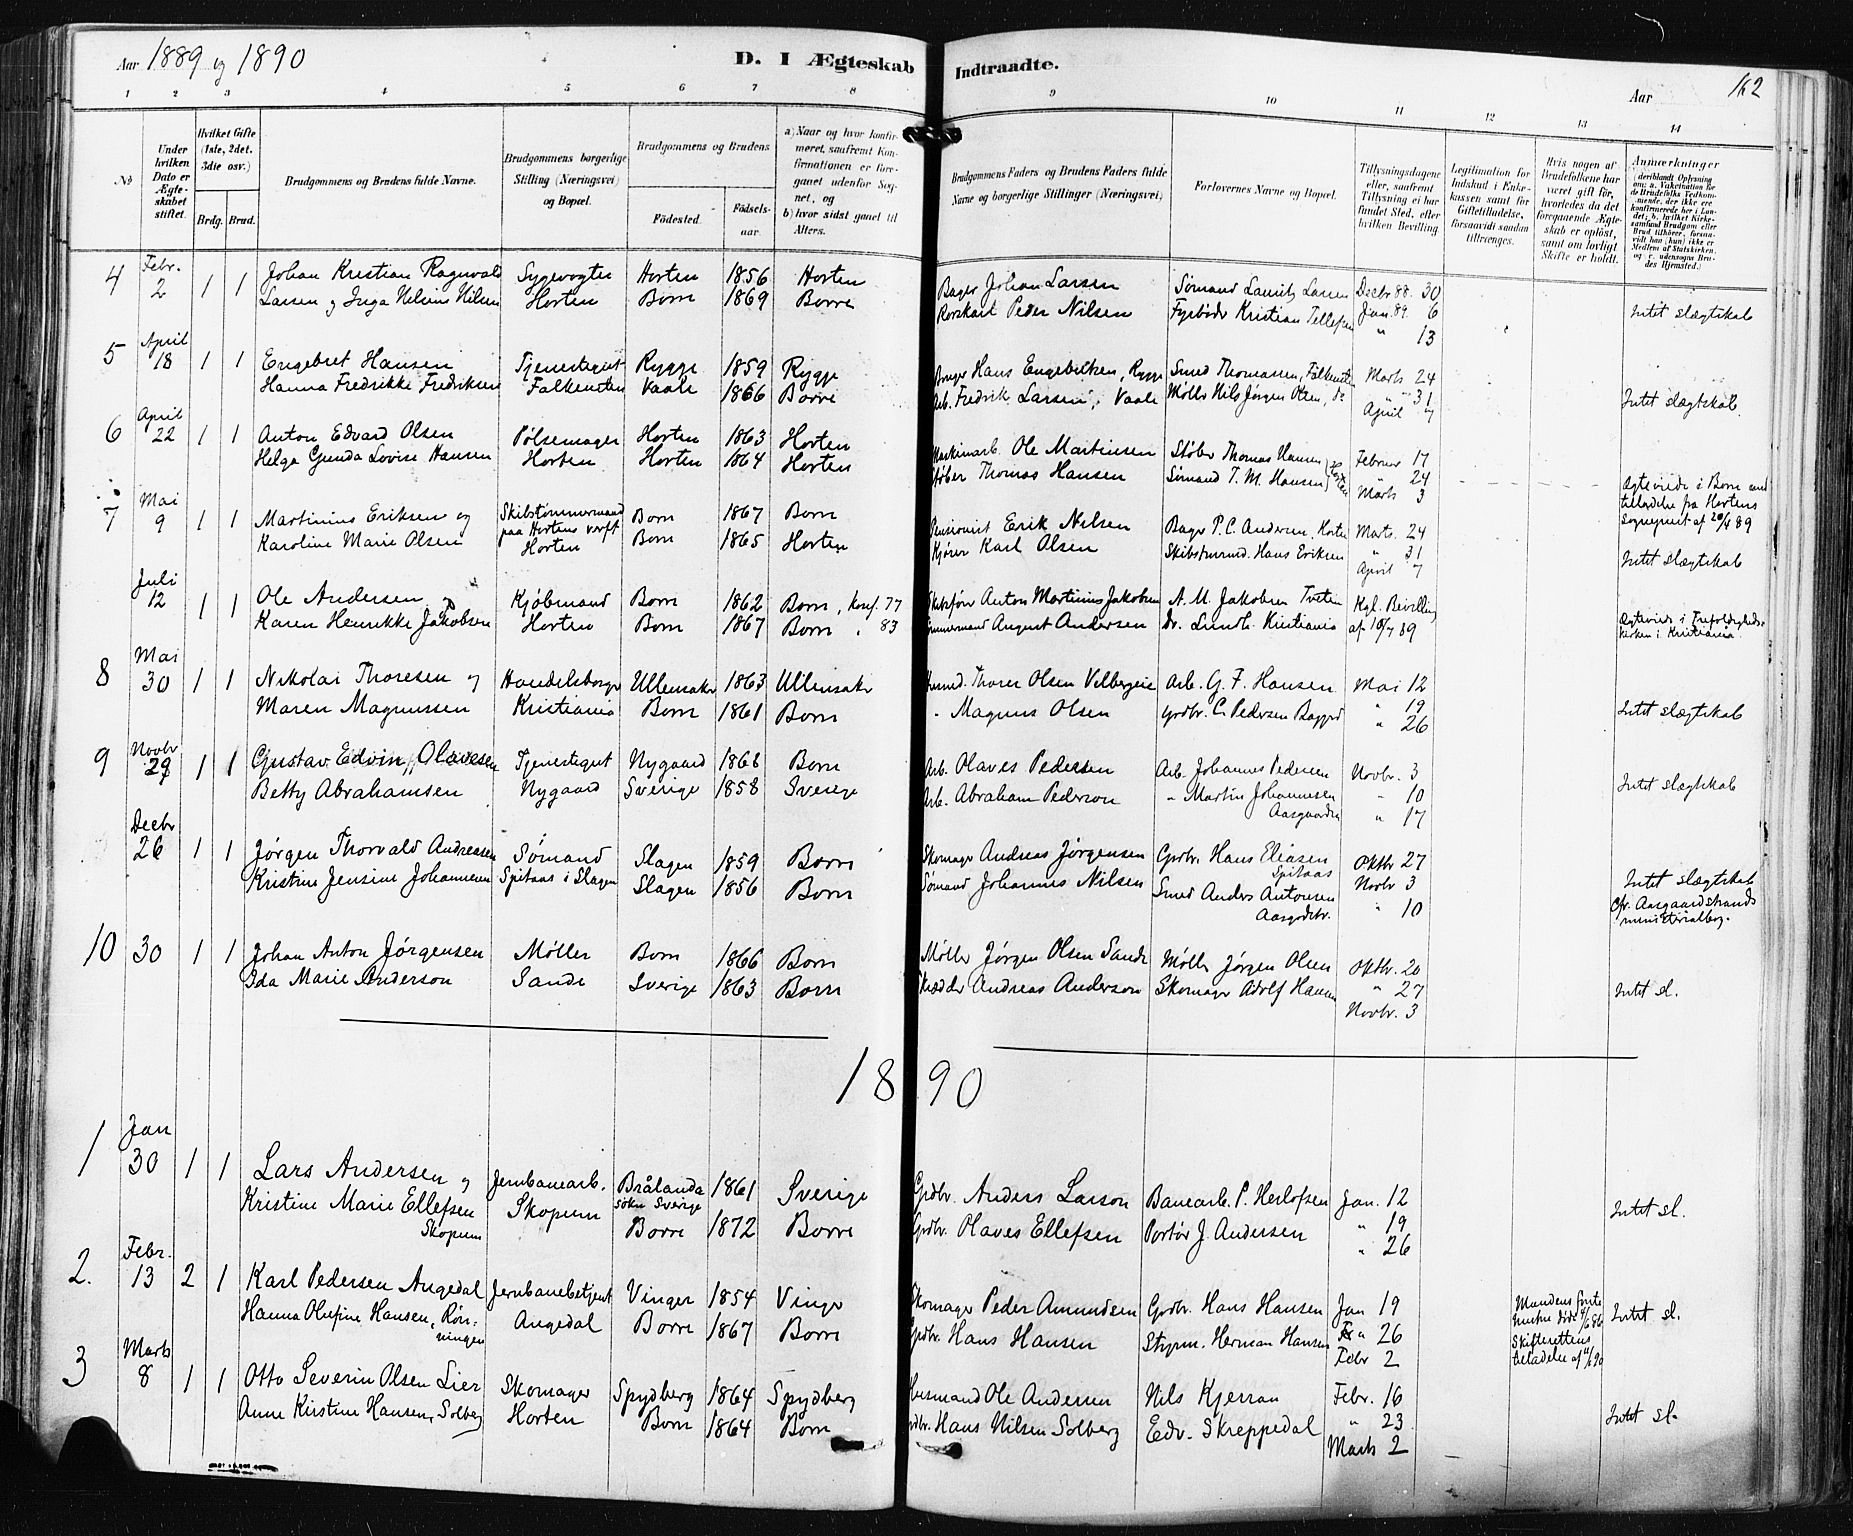 Aar 1889 og 1890
D. I Ægteskab Indtraadte.
Aar 162
1 2 3 4 5 6 7 8 9 10 11 12 13 14
No
Under hvilken Dato er Ægteskabet stiftet.
Hvilket Gifte (1ste, 2det, 3die osv.)
Brdg. Brud.
Brudgommens og Brudens fulde Navne.
Brudgommens borgerlige Stilling (Næringsvei) og Bopæl.
Brudgommens og Brudens
Fødested. Fødselsaar.
a) Naar og hvor konfirmeret, saafremt Konfirmationen er foregaaet udenfor Sognet, og
b) hvor sidst gaaet til Alters.
Brudgommens Faders og Brudens Faders fulde Navne og borgerlige Stillinger (Næringsvei)
Forlovernes Navne og Bopæl.
Tillysningsdagene eller, saafremt Tillysning ei har fundet Sted, efter hvilken Bevilling.
Legitimation for Indskud i Enkekassen samt for Giftetilladelse, forsaavidt saadan tiltrænges.
Hvis nogen af Brudefolkene har været gift før, hvorledes da det foregaaende Ægteskab er opløst, samt om lovligt Skifte er holdt.
Anmærkninger
4 Febr. 2 1 1 Johan Kristian Ragnvald Sygevogter Horten 1856 Horten Bager Johan Larsen Sømand Lauritz Larsen Decbr 88. 30
Larsen og Inga Nilsine Nilsen Horten Borre 1869 Borre Peder Nilsen Fyrbøder Kristian Tellefsen Jan. 89. 6 Intet slægtskab
" 13
5 April 18 1 1 Engebret Hansen Tjenestegut Rygge 1859 Rygge Hans Engebretsen, Rygge Smed Thomassen, Falkensten Marts 24
Hanna Fredrikke Fredriksen Falkensten Vaale 1866 Borre Arb. Fredrik Larsen, Vaale Møller Nils Jørgen Olsen, do " 31 Intet slægtskab.
April 7
6 April 22 1 1 Anton Edvard Olsen Pølsemager Horten 1863 Horten Maskinarb. Ole Martinsen Støber Thomas Hansen Februar 17
Helga Gunda Lovise Hansen Horten Horten 1864 Horten Støber Thomas Hansen Sømand T. M. Hansen Horten " 24
Marts 3
7 Mai 9 1 1 Martinius Eriksen og Skibstømmermand paa Hortens verft Borre 1867 Borre Pensionist Erik Nilsen Bager P. C. Andersen, Horten Marts. 24 Ægteviede i Borre med tilladelse fra Hortens Sogneprest af 20/4 89
Karoline Marie Olsen Horten Borre 1865 Horten Kjører Karl Olsen Skibstmrmd. Hans Eriksen " 31 Intet slægtskab
April 7
Juli 12 1 1 Ole Andersen og Kjøbmand Borre 1862 Borre, konf. 77 Skibsfører Anton Martinius Jakobsen A. M. Jakobsen Tveten Kgl. Bevilling
Karen Henrikke Jakobsen Horten Borre 1867 Borre " 83 Tømmermand August Andersen Dr. Lundh. Kristiania af 10/7 89 Ægteviede i Trefoldighedskirken i Kristiania
8 Mai 30 1 1 Nikolai Thoresen og Handelsborger Ullensaker 1863 Ullensaker Husmd. Thorer Olsen Arb. G. F. Hansen Mai 12
Maren Magnussen Kristiania Borre 1861 Borre " Magnus Olsen Grdbr. C. Pedersen " 19 Intet slægtskab
" 26
9 Novbr 29 1 1 Gustav Edvin Olavesen Tjenestegut Nygaard 1868 Borre Arb. Olaves Pedersen Arb. Johannes Pedersen Novbr. 3
Betty Abrahamsen Nygaard Sverige 1858 Sverige Arb. Abraham Pederson " Martin Johannesen " 10 Intet slægtskab
Aasgaarden " 17
Decbr 26 1 1 Jørgen Thorvald Andreasen Sømand Slagen 1859 Borre Skomager Andreas Jørgensen Grdbr. Hans Eliasen Spitaas Oktbr 27
Kristine Jensine Johannesen Spitaas i Slagen Slagen 1856 Borre Sømand Johannes Nilsen Smed Anders Antonsen Novbr 3 Intet slægtskab
Aasgdstr. " 10 Cfr. Aasgaardstrands ministerialbog.
10 30 1 1 Johan Anton Jørgensen Møller Borre 1866 Borre Møller Jørgen Olsen Sande Møller Jørgen Olsen Oktbr. 20
Ida Marie Anderson Sande Sverige 1863 Borre Skrædder Andreas Anderson Skomager Adolf Hansen " 27 Intet sl.
Novbr. 3
1890
1 Jan 30 1 1 Lars Andersen og Jernbanearb. Brålanda sokn Sverige 1861 Sverige Grdbr. Anders Larson Banearb. P. Herlofsen Jan. 12
Kristine Marie Ellefsen Skopum Skopum Borre 1872 Borre Grdbr. Olaves Ellefsen Portør J. Andersen " 19 Intet sl.
" 26
2. Febr. 13 2 1 Karl Pedersen Angedal Jernbanebetjent Vinger 1854 Vinger Skomager Peder Amundsen Grdbr. Hans Hansen Jan 19 Mandens første hustru døde 4/6 86 Intet sl.
Hanna Olufine Hansen, Rørningen Angedal Borre 1867 Borre Grdbr. Hans Hansen Styrm. Herman Hansen " 26 Skifterettens
Febr 2
3 Marts 8 1 1 Otto Severin Olsen Lier Skomager Spydberg 1864 Spydberg Husmand Ole Andersen Nils Kjerran Febr. 16
Anne Kirstine Hansen, Solberg Horten Borre 1864 Borre Grdbr. Hans Nilsen Solberg Edv. Skreppedal " 23 Intet sl.
Marts 2